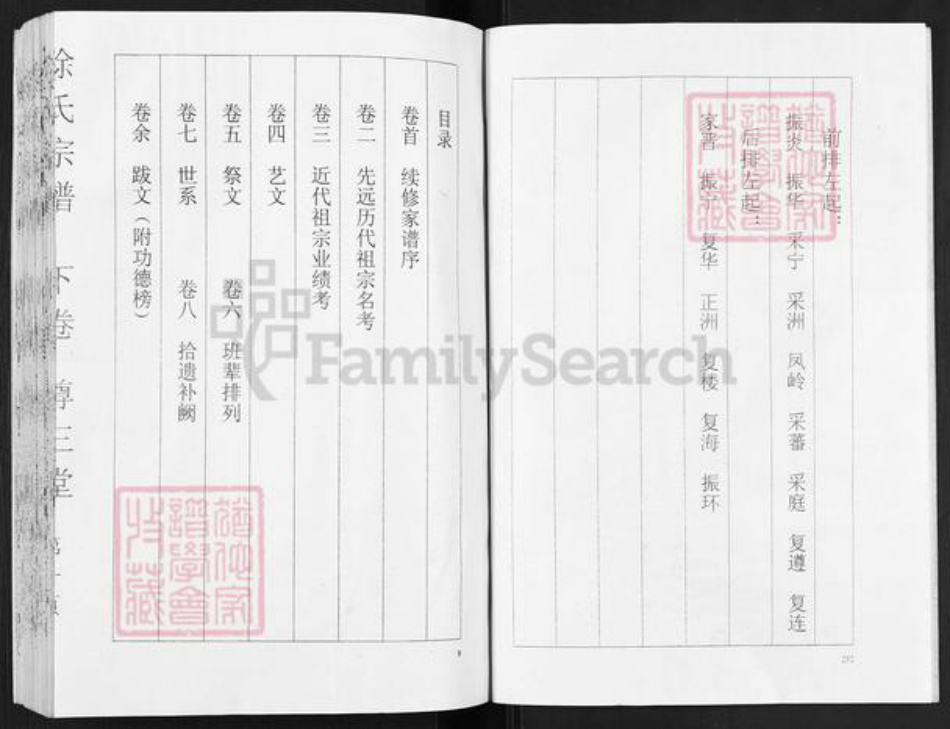 前排左起：
振炎 振华 采宁 采洲 凤岭 采蕃 采庭 复遵 复连
后排左起：
家晋 振宁 复华 正洲 复楼 复海 振环
目录
卷首 续修家谱序
卷二 先远历代祖宗名考
卷三 近代祖宗业绩考
卷四 艺文
卷五 祭文 卷六 班辈排列
卷七 世系 卷八 拾遗补阙
卷余 跋文（附功德榜）
徐氏宗谱 下卷 尊三堂
FamilySearch